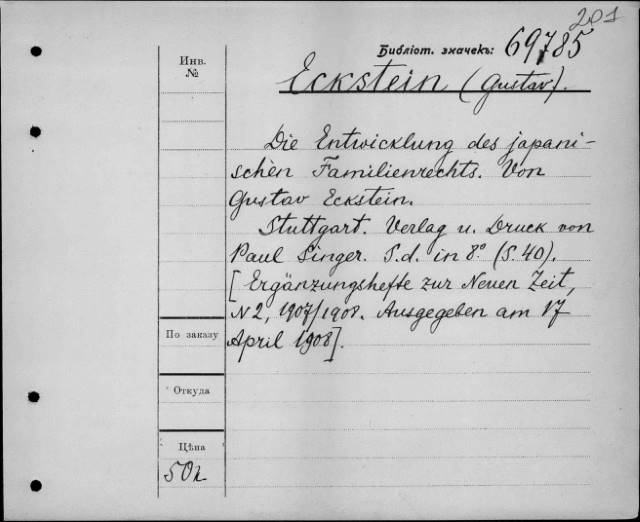 201
Библіот. значекъ: 69785
Инв.
№
Eckstein (Gustav).
Die Entwicklung des japani-
schen Familienrechts. Von
Gustav Eckstein.
Stuttgart. Verlag u. Druck von
Paul Singer. S.d. in 8º (S. 40).
[Ergänzungshefte zur Neuen Zeit,
N2, 1907/1908. Ausgegeben am 17
April 1908].
По заказу
Откуда
Цѣна
50